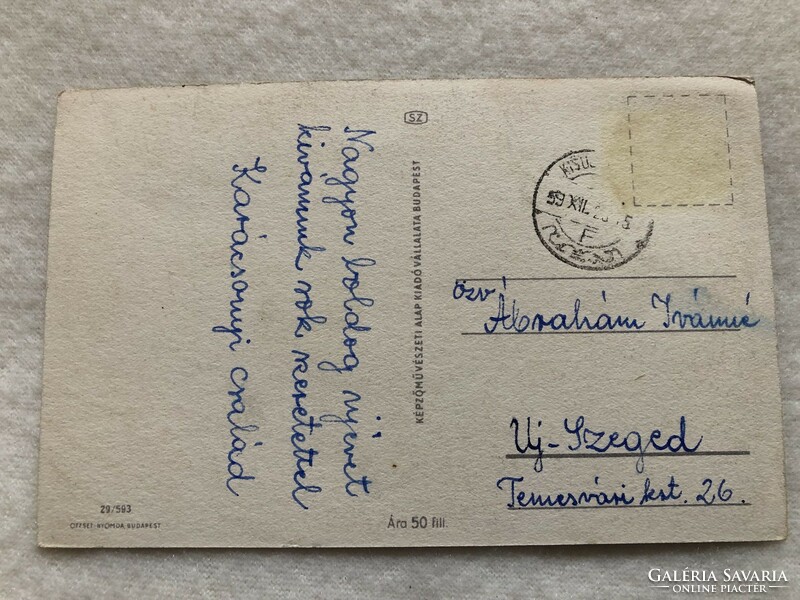 Nagyon boldog ujévet
kívánunk sok szeretettel
Karácsonyi család
29/593
OFFSET-NYOMDA BUDAPEST
SZ
KÉPZŐMŰVÉSZETI ALAP KIADÓ VÁLLALATA BUDAPEST
Ára 50 fill.
59 XII.
F
özv
Ábrahám Ivánné
Uj-Szeged
Temesvári krt. 26.
GALÉRIA SAVARIA
ONLINE PIACTÉR